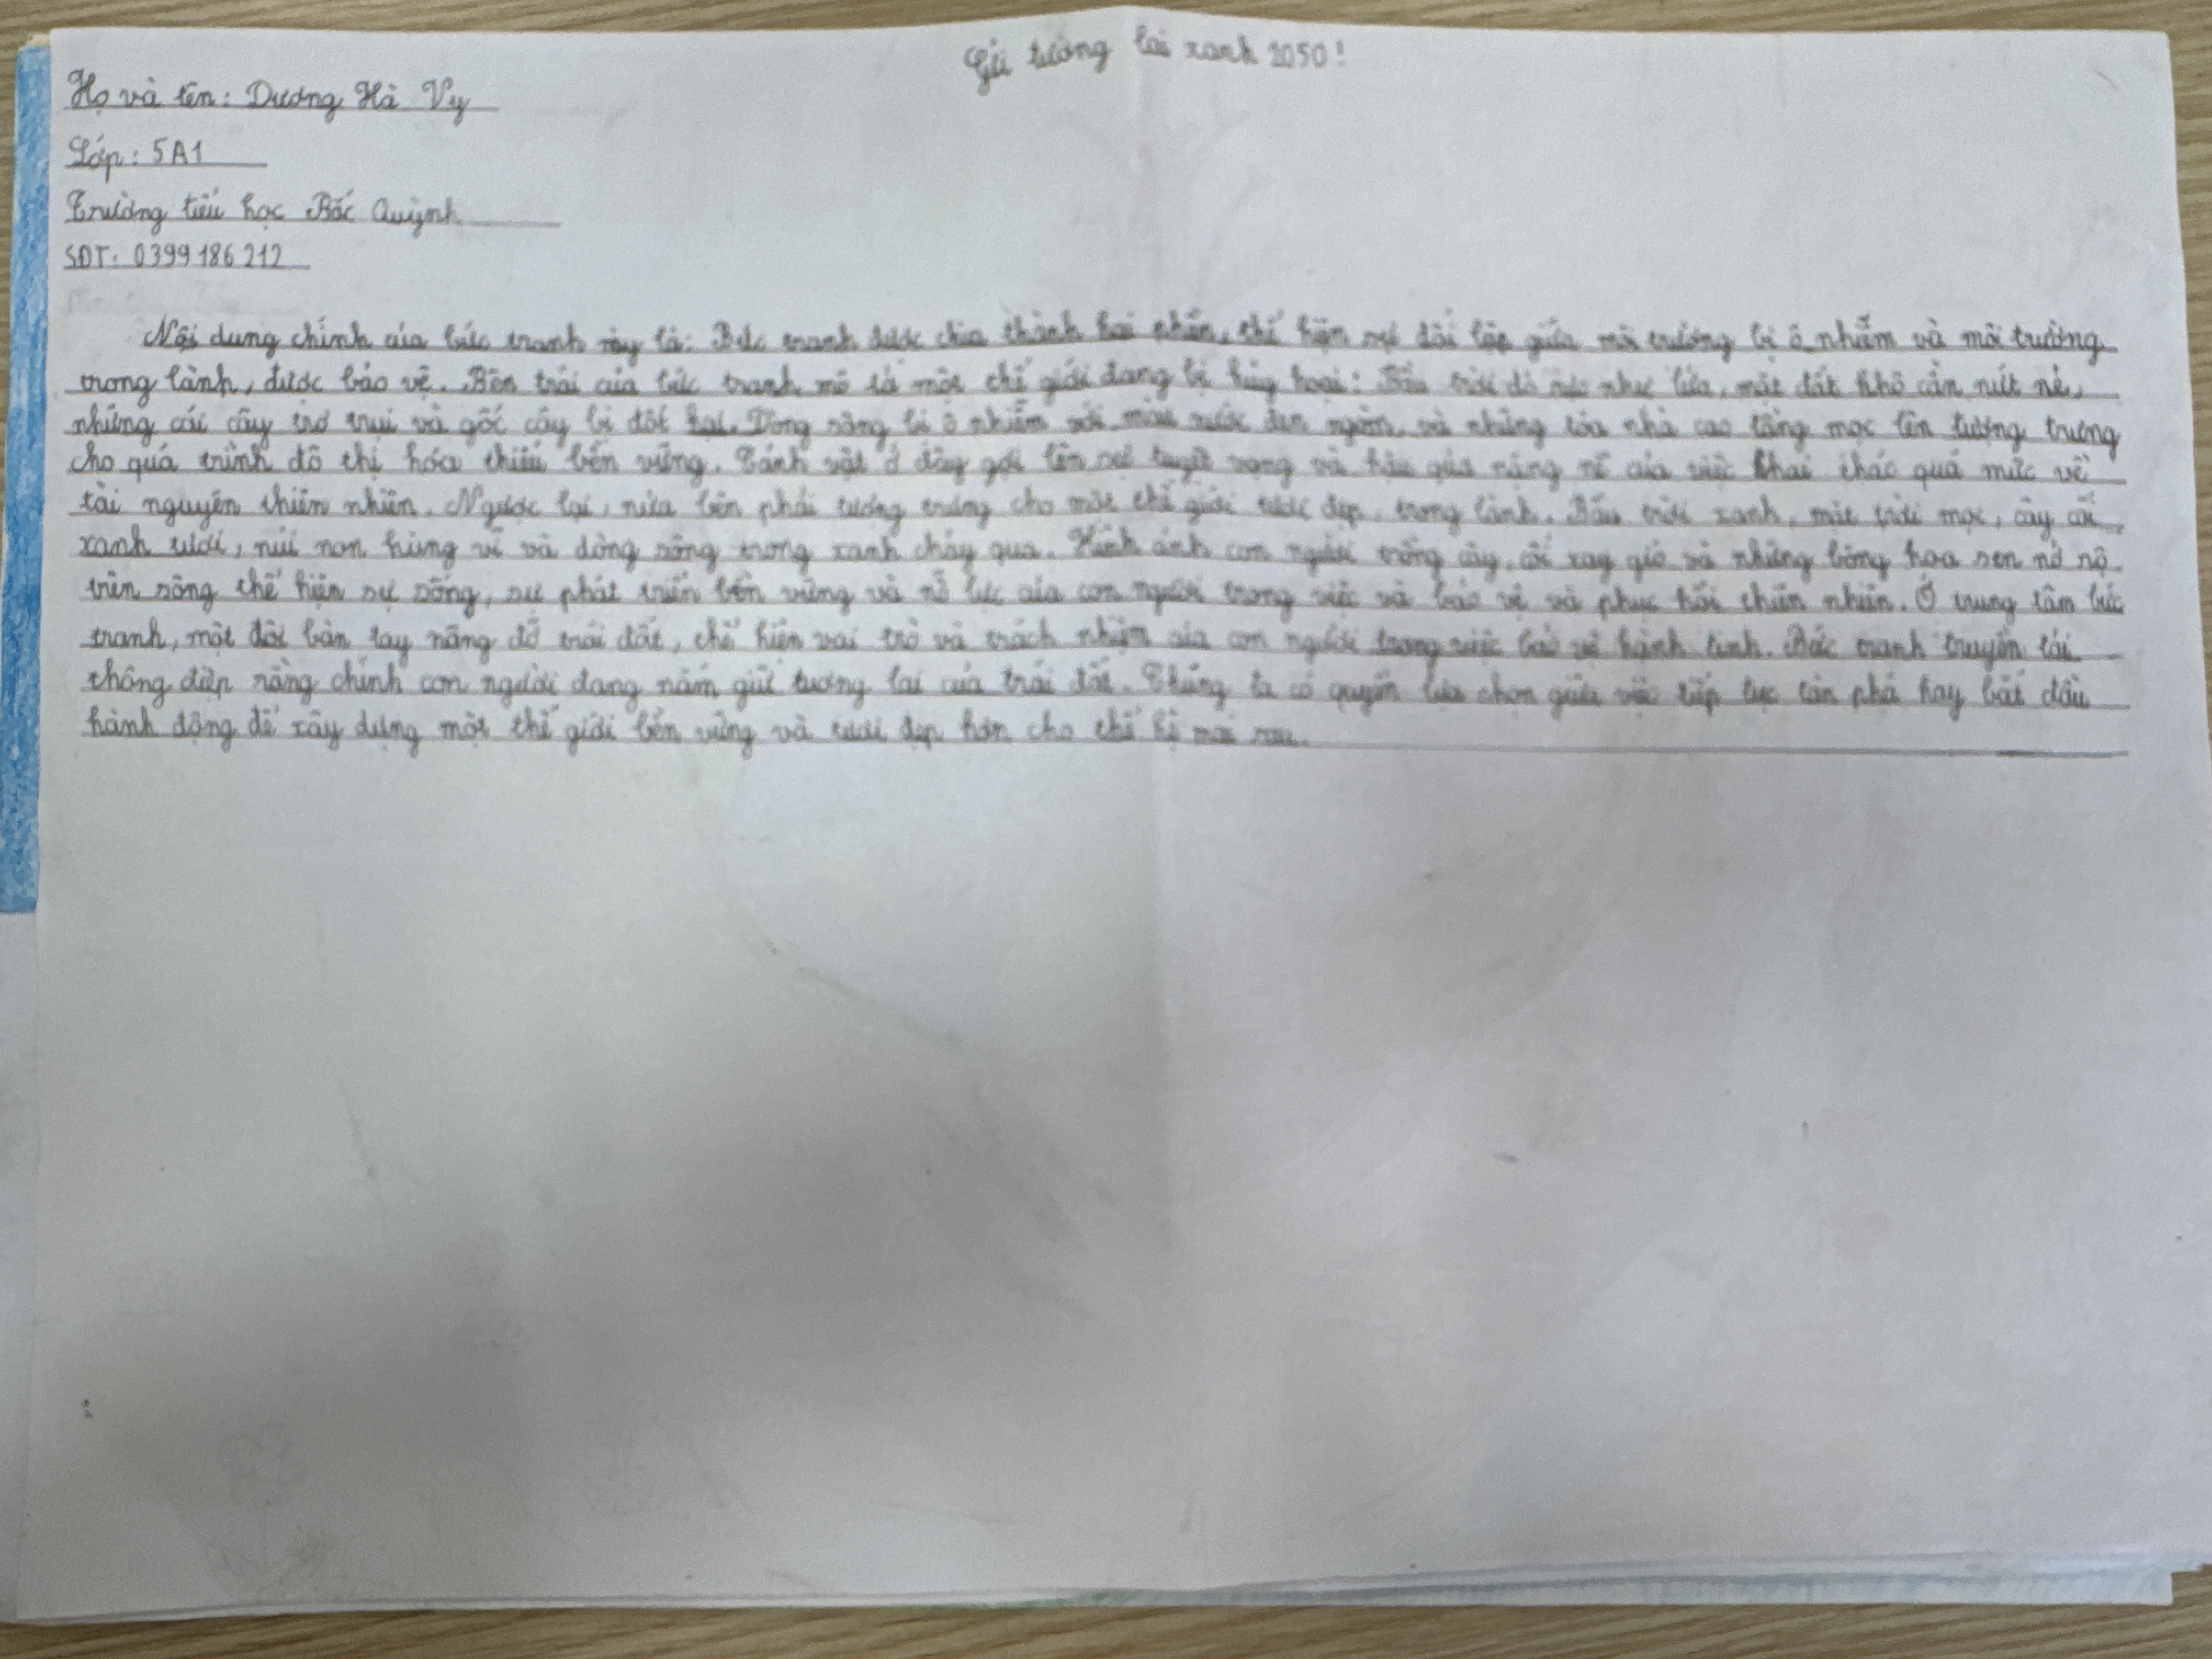 Gửi tương lai xanh 2050!
Họ và tên: Dương Hà Vy
Lớp: 5A1
Trường tiểu học Bắc Quỳnh
SĐT: 0399186212
Nội dung chính của bức tranh này là: Bức tranh được chia thành hai phần, thể hiện sự đối lập giữa môi trường bị ô nhiễm và môi trường
trong lành, được bảo vệ. Bên trái của bức tranh mô tả một thế giới đang bị hủy hoại: Bầu trời đỏ rực như lửa, mặt đất khô cằn nứt nẻ,
những cái cây trơ trụi và gốc cây bị đốt hại. Dòng sông bị ô nhiễm với màu nước đen ngòm, và những tòa nhà cao tầng mọc lên tượng trưng
cho quá trình đô thị hóa thiếu bền vững. Cảnh vật ở đây gợi lên sự tuyệt vọng và hậu quả nặng nề của việc khai thác quá mức về
tài nguyên thiên nhiên. Ngược lại, nửa bên phải tượng trưng cho một thế giới tươi đẹp, trong lành. Bầu trời xanh, mặt trời mọc, cây cối
xanh tươi, núi non hùng vĩ và dòng sông trong xanh chảy qua. Hình ảnh con người trồng cây, cối xay gió và những bông hoa sen nở rộ
trên sông thể hiện sự sống, sự phát triển bền vững và nỗ lực của con người trong việc và bảo vệ và phục hồi thiên nhiên. Ở trung tâm bức
tranh, một đôi bàn tay nâng đỡ trái đất, thể hiện vai trò và trách nhiệm của con người trong việc bảo vệ hành tinh. Bức tranh truyền tải
thông điệp rằng chính con người đang nắm giữ tương lai của trái đất. Chúng ta có quyền lựa chọn giữa việc tiếp tục tàn phá hay bắt đầu
hành động để xây dựng một thế giới bền vững và tươi đẹp hơn cho thế hệ mai sau.